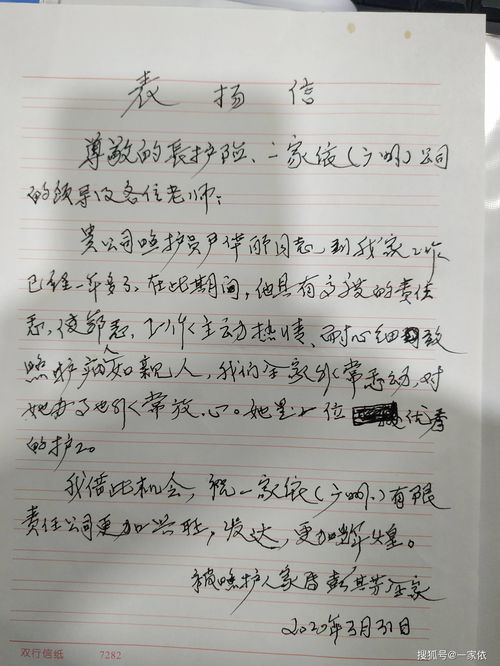 表扬信
尊敬的長护险、一家依(广州)公司
的领导及各位老师:
贵公司照护员尹华丽同志到我家工作
已经一年多了,在此期间,他具有高度的责任
感,使命感,工作主动热情、耐心细致
照护病人如亲人,我们全家非常感动,对
她办事也非常放心。她是一位优秀
的护工。
我借此机会,祝一家依(广州)有限
责任公司更加兴旺,发达,更加辉煌。
被照护人家属彭其芳全家
2020年3月31日
双行信纸 7282
搜狐号@一家依